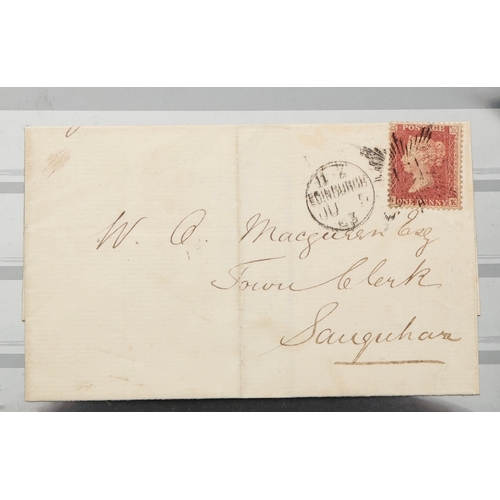 POSTAGE
ONE PENNY
EDINBURGH
63
W. O. Macqueen Esq
Town Clerk
Sanquhar